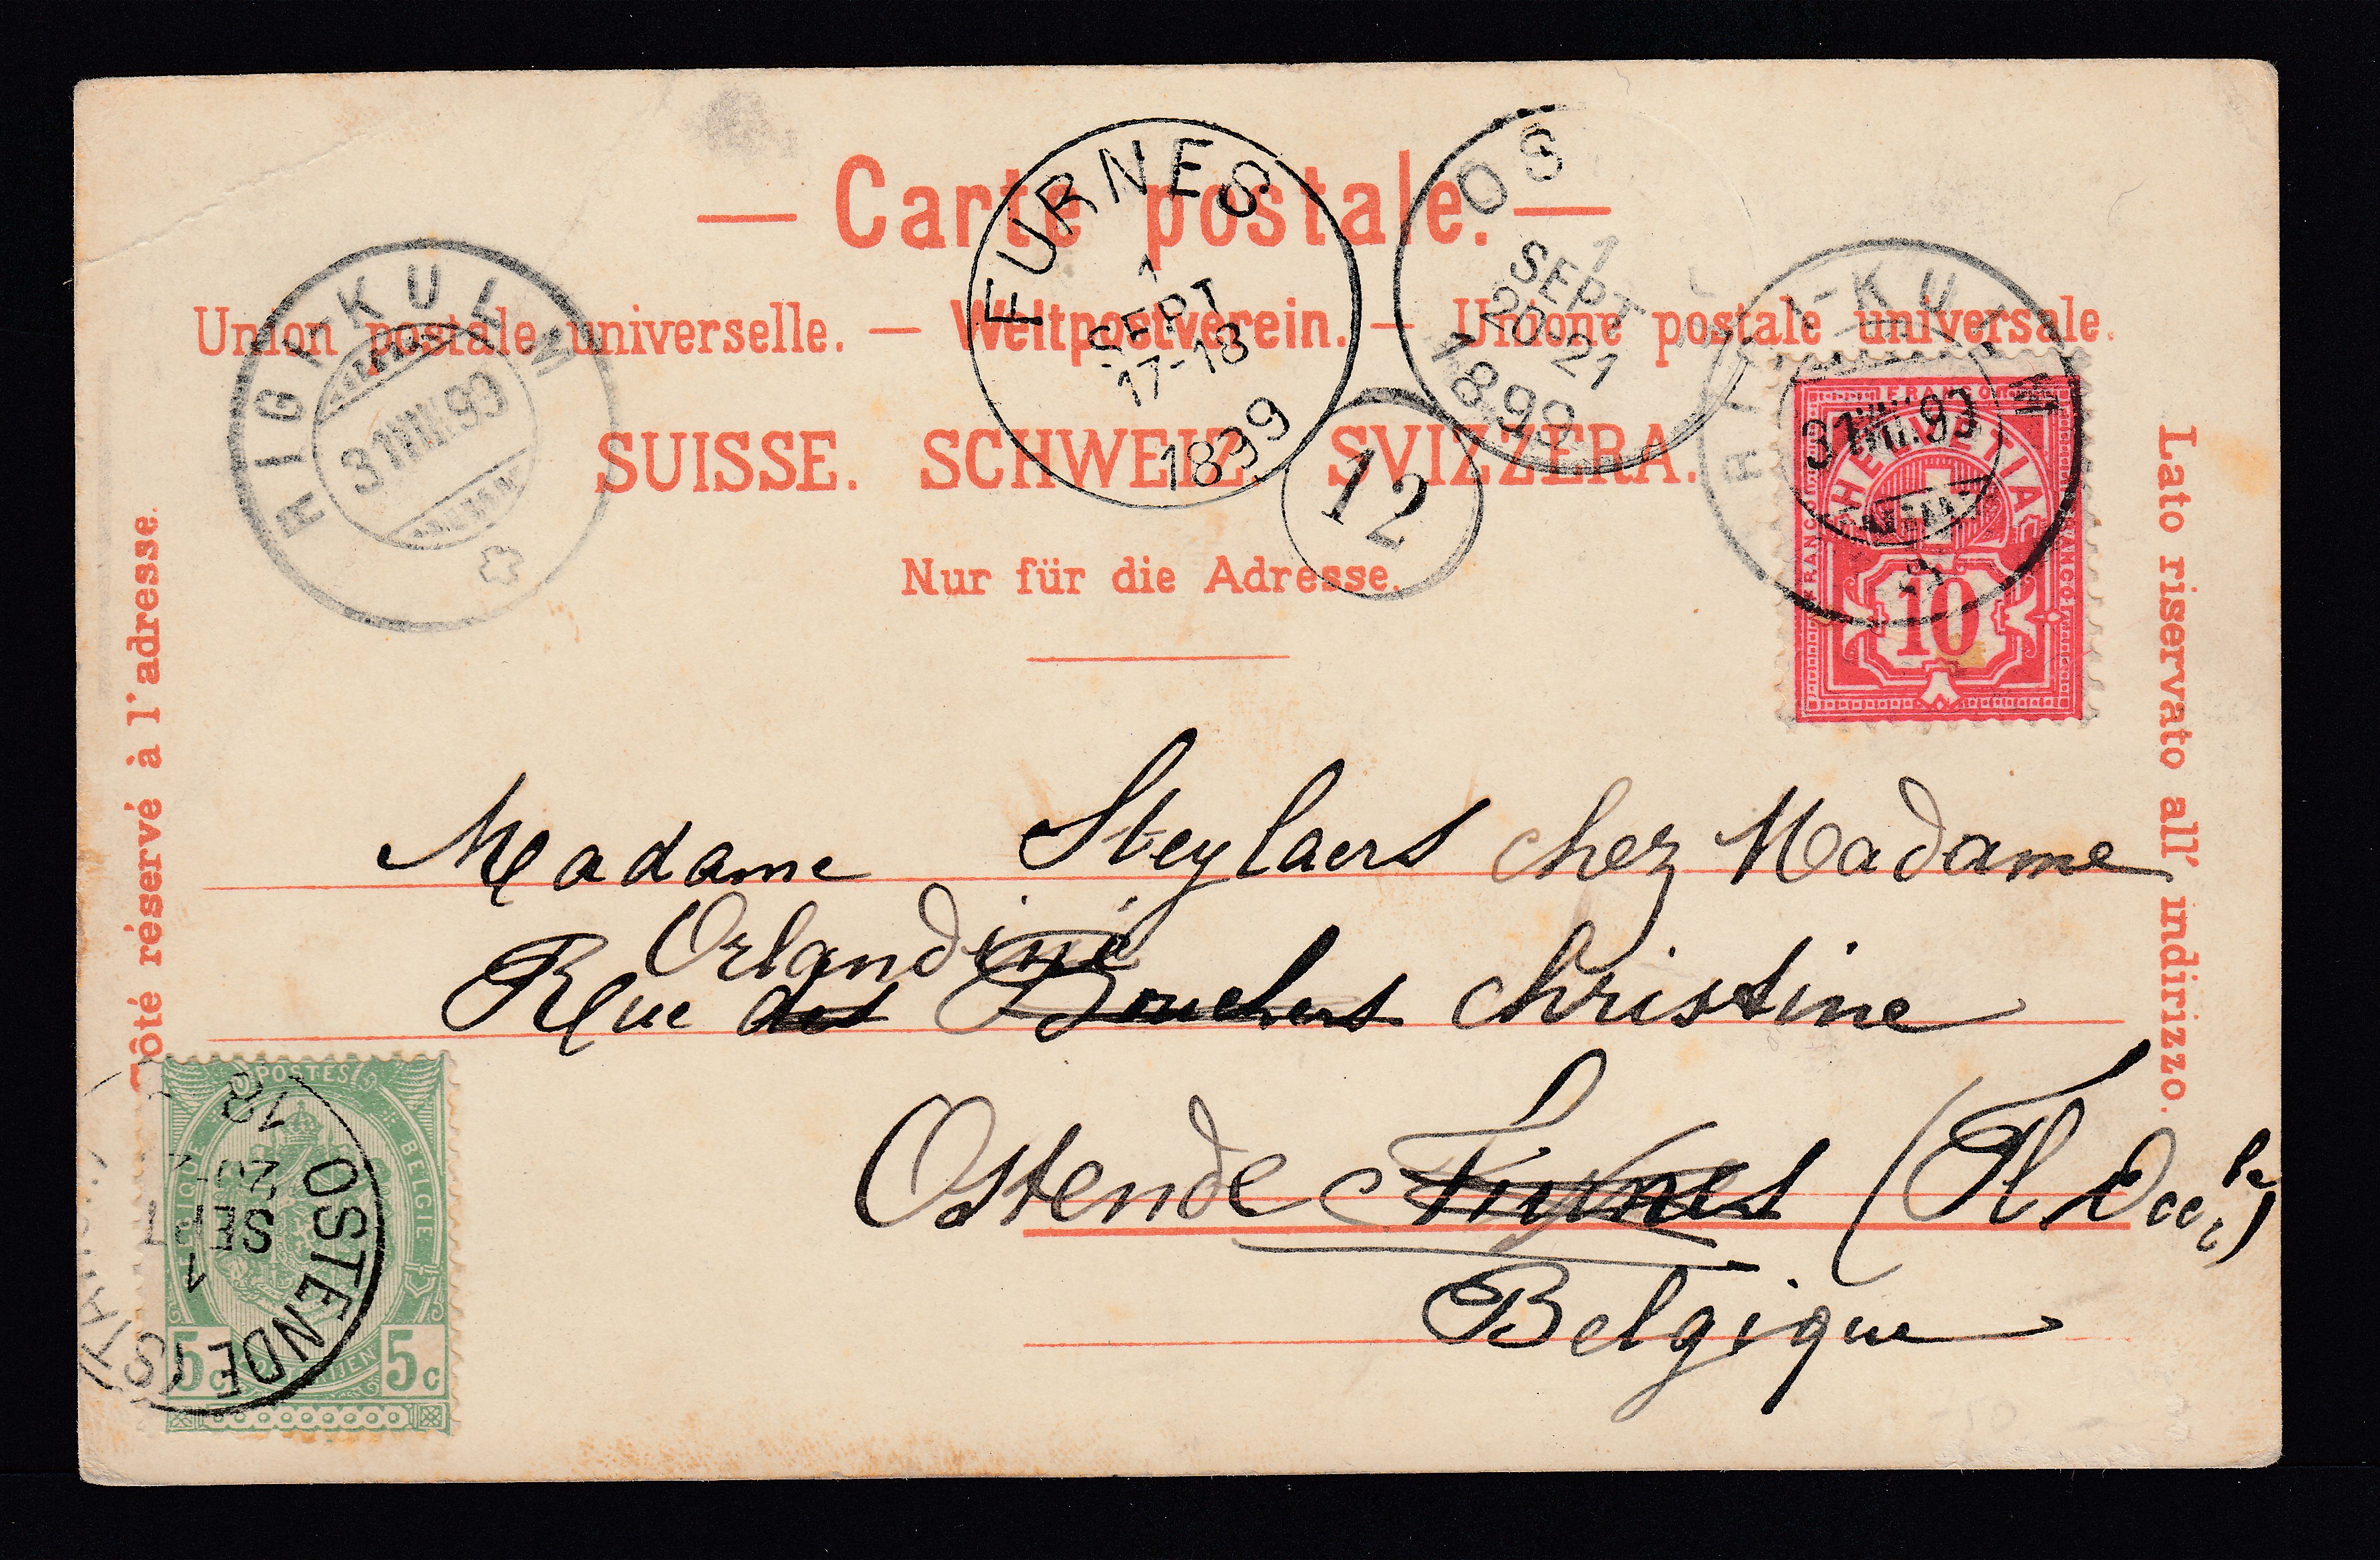 — Carte postale. —
Union postale universelle. — Weltpostverein. — Unione postale universale.
SUISSE. SCHWEIZ. SVIZZERA.
Nur für die Adresse.
Côté réservé à l'adresse.
Lato riservato all' indirizzo.
RIGI-KULM
31 VIII 99
FURNES
1
SEPT
17-18
1899
OS
1
SEPT
20-21
1899
12
RIGI-KULM
31 VIII 99
FRANCO
HELVETIA
FRANCO
FRANCO
10
Madame Steylaers chez Madame
Orlandini
Rue des Bouchers Christine
Ostende Furnes (Fl. Occ.le)
Belgique
POSTES
BELGIQUE
BELGIE
POSTERIJEN
5c 5c
OSTENDE (STATION)
1
SEPT
20-
18